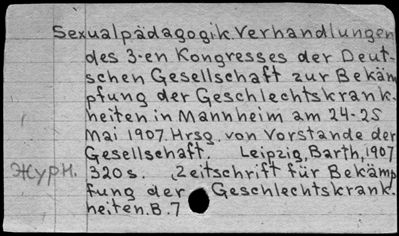 Sexualpädagogik. Verhandlungen
des 3-en Kongresses der Deut-
schen Gesellschaft zur Bekäm
pfung der Geschlechtskrank.
heiten in Mannheim am 24-25
Mai 1907. Hrsg. von Vorstande der
Gesellschaft. Leipzig, Barth, 1907
Журн. 320 s. Zeitschrift für Bekämp
fung der Geschlechtskrank.
heiten. B. 7